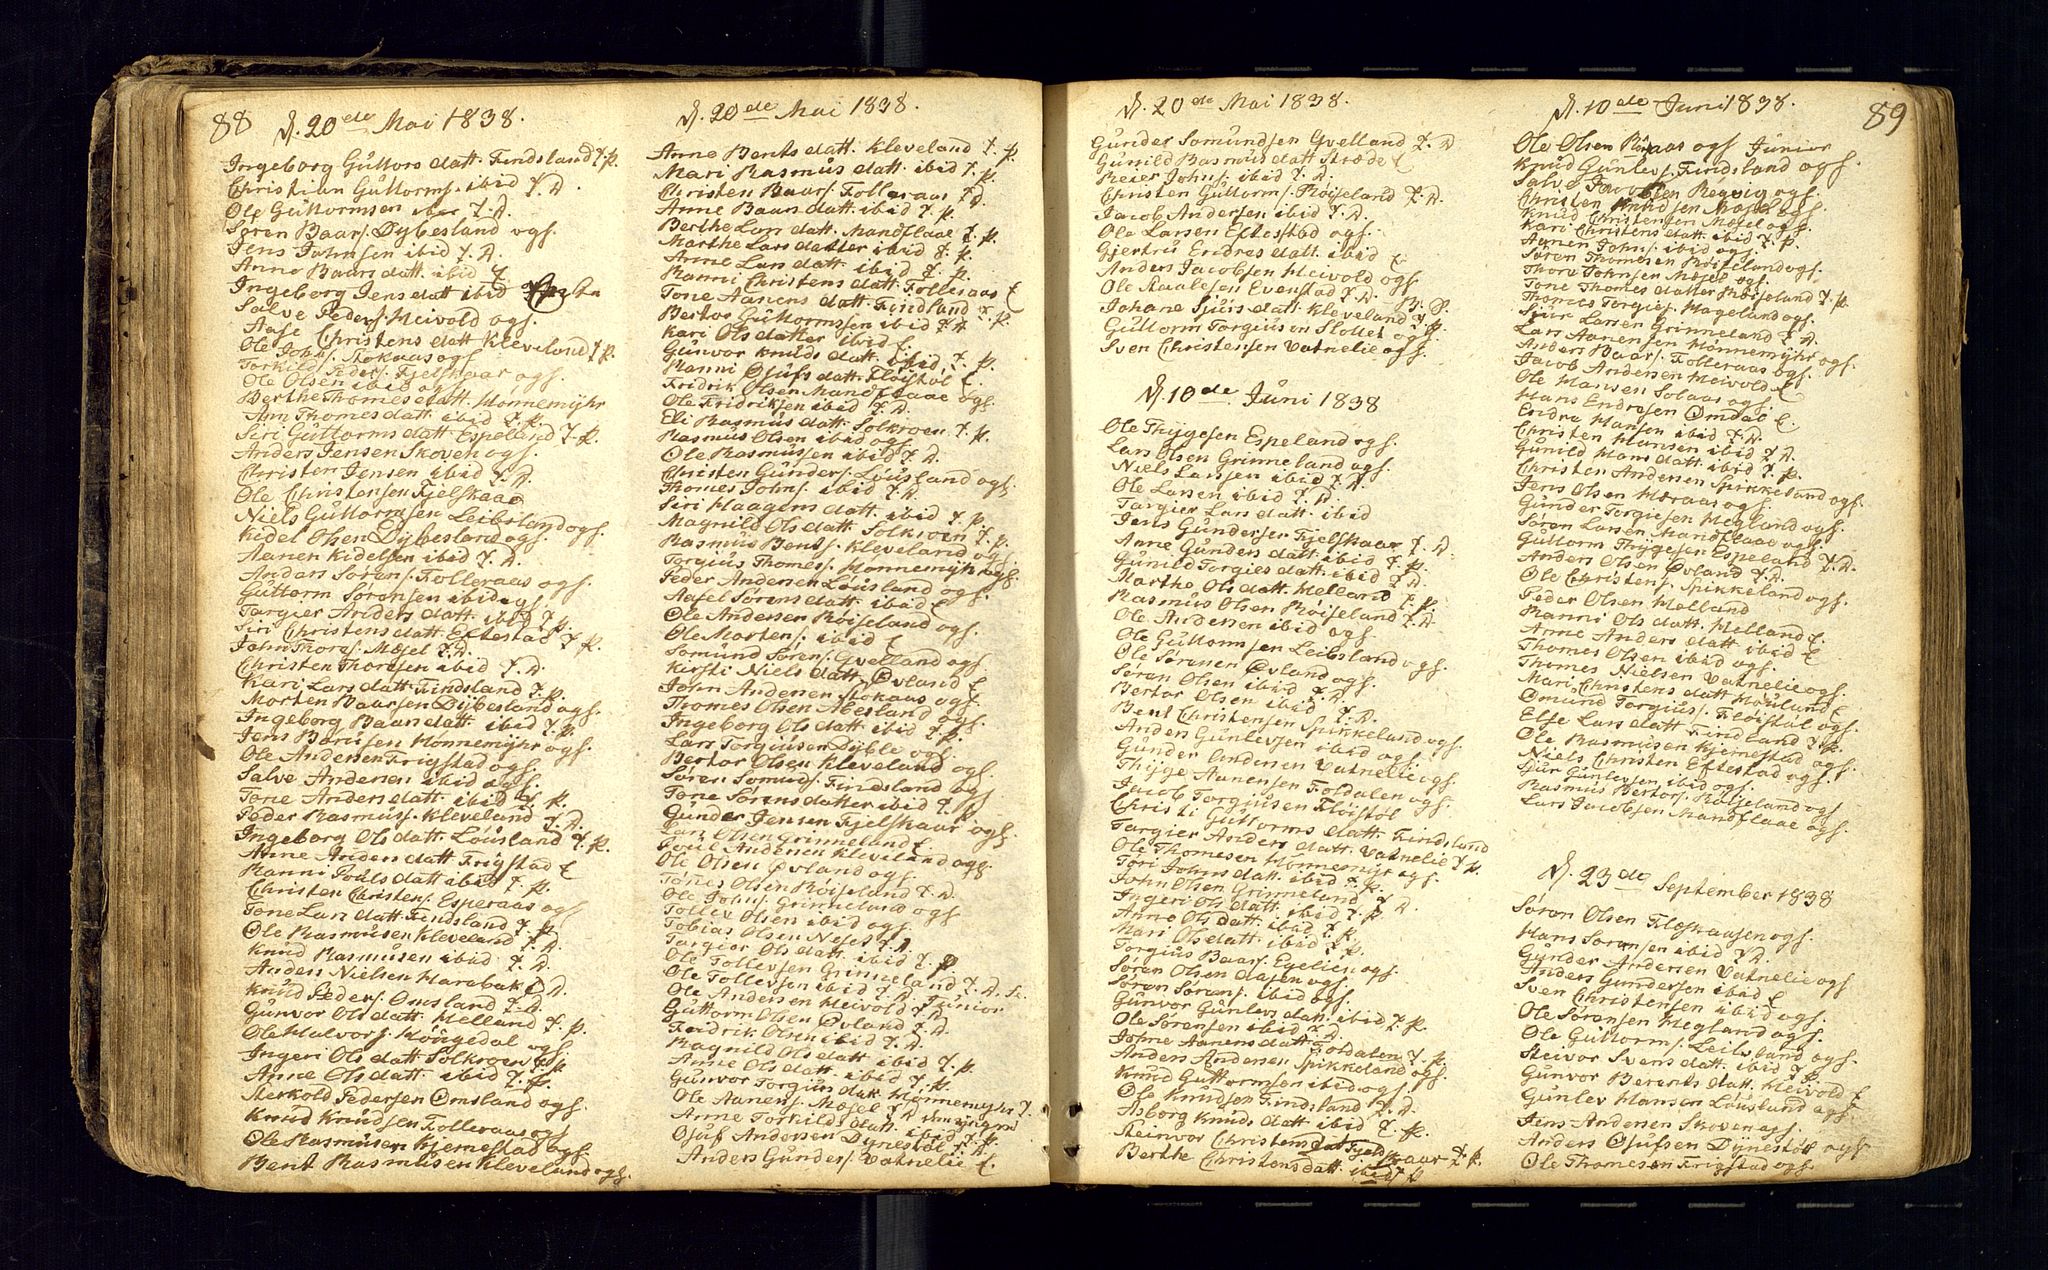 88
D. 20de Mai 1838.
Ingeborg Guttors datt. Findsland T. P.
Christian Guttorms. ibid T. D.
Ole Guttormsen ibid T. D.
Søren Baars. Dybesland ogs.
Jens Johnsen ibid T. D.
Anne Baars datt. ibid T.
Ingeborg Jens datt ibid
Salve Peders. Heivold ogs.
Aase Christens datt Kleveland T. P.
Ole Johns. Stokaas ogs.
Torkild Peders. Fjelskaar ogs.
Ole Olsen ibid ogs.
Berthe Thomes datt. Honnemyhr
Ann Thomes datt. ibid T. P.
Siri Guttorms datt Espeland T. P.
Anders Jensen Skoven ogs.
Christen Jensen ibid T. D.
Ole Christensen Fjelskaar
Niels Guttormsen Leibsland ogs.
Kidel Olsen Dybesland ogs.
Aanen Kidelsen ibid T. D.
Anders Sørens. Følleraas ogs.
Guttorm Sørensen ibid ogs.
Targier Anders datt. ibid T. P.
Siri Christens datt Eftestad T. P.
John Thors. Møsel T. D.
Christen Thorsen ibid T. D.
Kari Lars datt. Findsland T. P.
Morten Baarsen Dybesland ogs.
Ingeborg Baars datt ibid T. P.
Jens Børusen Honnemyhr ogs.
Ole Andersen Frigstad ogs.
Salve Andersen ibid ogs.
Tone Anders datt. ibid T. P.
Peder Rasmus. Kleveland T. D.
Ingeborg Ols datt. Løusland T. P.
Anne Anders datt Frigstad E
Ranni Pouls datt ibid T. P.
Christen Christens. Esperaas ogs.
Tone Lars datt Findsland T. P.
Ole Rasmusen Kleveland T. D.
Knud Rasmusen ibid T. D.
Anders Nielsen Harebak T. D.
Knud Peders. Omsland T. D.
Gunvor Ols datt. Helland T. P.
Ole Halvors. Høugedal ogs.
Ingeri Ols datt Solkroen T. P.
Anne Ols datt. ibid T. P.
Sterkold Pedersen Omsland ogs.
Knud Knudsen Folleraas ogs.
Ole Rasmusen Kjernestad ogs.
Bent Rasmusen Kleveland ogs.
D. 20de Mai 1838
Anne Bents datt. Kleveland T. P.
Mari Rasmus datt. ibid T. P.
Christen Baars. Folleraas T. D.
Anne Baars datt. ibid T. P.
Berthe Lars datt. Mandflaae T. P.
Marthe Lars datter ibid T. P.
Anne Lars datt. ibid T. P.
Ranni Christens datt. Folleraas E
Tone Aanens datt. Findsland T. P.
Bertor Guttormsen ibid T. D.
Kari Ols datter ibid E
Gunvor Knuds datt. ibid, T. P.
Ranni Osufs datt. Fløistøl E.
Fridrik Olsen Mandflaae ogs.
Ole Fridriksen ibid T. D.
Eli Rasmus datt. Solkroen T. P.
Rasmus Olsen ibid ogs.
Ole Rasmussen ibid T. D.
Christen Gunders. Løusland ogs.
Thomes Johns. ibid T. D.
Siri Haagens datt. ibid T. P.
Magnild Ols datt Solkroen T. P.
Rasmus Bents. Kleveland ogs.
Torgius Thomes. Honnemyhr ogs
Peder Andersen Løusland ogs.
Aasel Sørens datt. ibid E
Ole Andersen Røiseland ogs.
Ole Mortens. ibid E
Somund Sørens. Gvelland ogs.
Kirsti Niels datt. Øvland E
John Andersen Stokaas ogs.
Thomes Olsen Abesland ogs.
Ingeborg Ols datt. ibid T. P.
Lars Torgiusen Dyble ogs.
Bertor Olsen Kleveland ogs.
Søren Somunds. Findsland ogs.
Tone Sørens datter ibid T. P.
Gunder Jensen Fjelskaar ogs.
Lars Olsen Grinneland E
Poul Andersen Kleveland ogs.
Ole Olsen Øvland ogs.
Tones Olsen Røiseland T. D.
Ole Johns. Grinneland ogs
Tollev Olsen ibid ogs.
Tobias Olsen Neset T. D.
Targier Ols datt. ibid T. P
Ole Tollevsen Grinneland T. D. Se.
Ole Tollevsen ibid T. D. Junior
Ole Andersen Heivold T. D
Guttorm Olsen Øvland T. D.
Fridrik Olsen ibid T. D.
Ragnild Ols datt ibid T. P.
Anne Ols datt. ibid T. P.
Gunvor Torgius datt. Honnemyhr T.
Ole Aanens. Møsel T. D
Anne Torkilds datt. ibid T. P.
Osuf Andersen Dynestøl T. D.
Anders Gunders. Vatnelie E.
D. 20de Mai 1838.
Gunder Somundsen Gvelland T. D
Gunild Rasmus datt Stræde E
Reier Johns. ibid T. D.
Christen Guttorms. Røiseland T. D.
Jacob Andersen ibid T. D.
Ole Larsen Eftestad ogs.
Gjertru Endres datt. ibid E
Anders Jacobsen Heivold ogs.
Ole Roalesen Evenstad T. D.
Johane Sjurs datt. Kleveland T. P.
Guttorm Torgiusen Slottet ogs.
Sven Christensen Vatnelie ogs.
D. 10de Juni 1838
Ole Thygesen Espeland ogs.
Lars Olsen Grinneland ogs.
Niels Larsen ibid T. D.
Ole Larsen ibid T. D.
Targier Lars datt. ibid
Jens Gundersen Fjelskaar T. D.
Anne Gunders datt. ibid T. P.
Gunild Torgies datt. ibid T. D.
Marthe Ols datt. Helland T. P.
Rasmus Olsen Røiseland T. D.
Ole Andersen ibid ogs.
Ole Guttormsen Leibsland ogs.
Ole Sørensen Øvland ogs.
Søren Olsen ibid T. D.
Bertor Olsen ibid T. D.
Bent Christensen Spikkeland ogs.
Anders Gunlevsen ibid ogs.
Gunder Andersen Vatnelie ogs.
Thyge Aanensen Foldalen ogs.
Jacob Torguisen Fløistøl
Christi Guttorms datt. Findsland
Targier Anders datt. Vatnelie T. P.
Ole Thomesen Honnemyr ogs.
Tori Johns datt. ibid T. P.
John Olsen Grinneland T. D.
Ingeri Ols datt. ibid T. P.
Anne Ols datt. ibid T. P.
Mari Ols datt. ibid T. P.
Torgius Baars. Egelien ogs.
Søren Olsen dalen ogs.
Søren Sørens. ibid ogs.
Gunvor Gunlevs datt. ibid T. P.
Ole Sørensen ibid T. D.
Johne Aanens datt. Foldalen T. P.
Anders Andersen Spikkeland ogs.
Knud Guttormsen ibid ogs.
Ole Knudsen Findsland T. D.
Asborg Knuds datt. ibid T. P.
Steinvor Christens datt Fjelskaar T. P.
Berthe Christens datt. ibid T. P
89
D. 10de Juni 1838.
Ole Olsen Raas ogs Junior
Knud Gunlevs. Findsland ogs.
Salve Jacobsen Regevig ogs.
Christen Knudsen Møsel ogs.
Knud Christensen Møsel ogs.
Kari Christens datt. ibid T. P.
Aanen Johns. ibid ogs
Søren Thomesen Røiseland ogs.
Thore Johnsen Møsel ogs.
Tone Thomes datter Røiseland T. P.
Thomes Torgies. Hageland ogs.
Sjur Larsen Grinneland T. D.
Lars Aanensen Honnemyhr ogs.
Anders Baars. Folleraas ogs.
Jacob Andersen Heivold E
Ole Hansen Solaas ogs.
Hans Endresen Omdal E.
Endre Hansen ibid T. D.
Christen Hansen ibid T. D.
Gunild Hans datt. ibid T. P.
Christen Andersen Spikkeland ogs.
Jens Olsen Høraas ogs.
Gunder Torgiesen Hegland ogs.
Søren Larsen Mandflaae ogs.
Guttorm Thygesen Espeland T. D.
Anders Olsen Øvland T. D.
Ole Christens. Spikkeland ogs.
Peder Olsen Helland
Ranni Ols datt. Helland E
Anne Anders datt. ibid E
Thomes Olsen ibid ogs.
Thomes Nielsen Vatnelie ogs.
Mari Christens datt. Høuland E
Omund Torgius. Fløistøl ogs.
Else Lars datt Findland T. P.
Ole Rasmusen Kjernestad ogs.
Niels Christen Eftestad ogs.
Sjur Gunlevsen ibid ogs.
Rasmus Bertors. Røiseland ogs
Lars Jacobsen Mandflaae ogs.
D. 23de September 1838
Søren Olsen Fløskaasen ogs.
Hans Sørensen ibid T. D.
Gunder Andersen Vatnelie ogs
Anders Gundersen ibid E
Sven Christensen ibid ogs.
Ole Sørensen Hegland ogs.
Ole Guttorms. Leibsland ogs.
Steivor Svens datt. ibid T. P.
Gunvor Berents datt. Heivold E
Gunlev Hansen Løusland ogs.
Jens Andersen Skoven ogs.
Anders Osufsen Dynestøl ogs
Ole Thomesen Frigstad ogs.